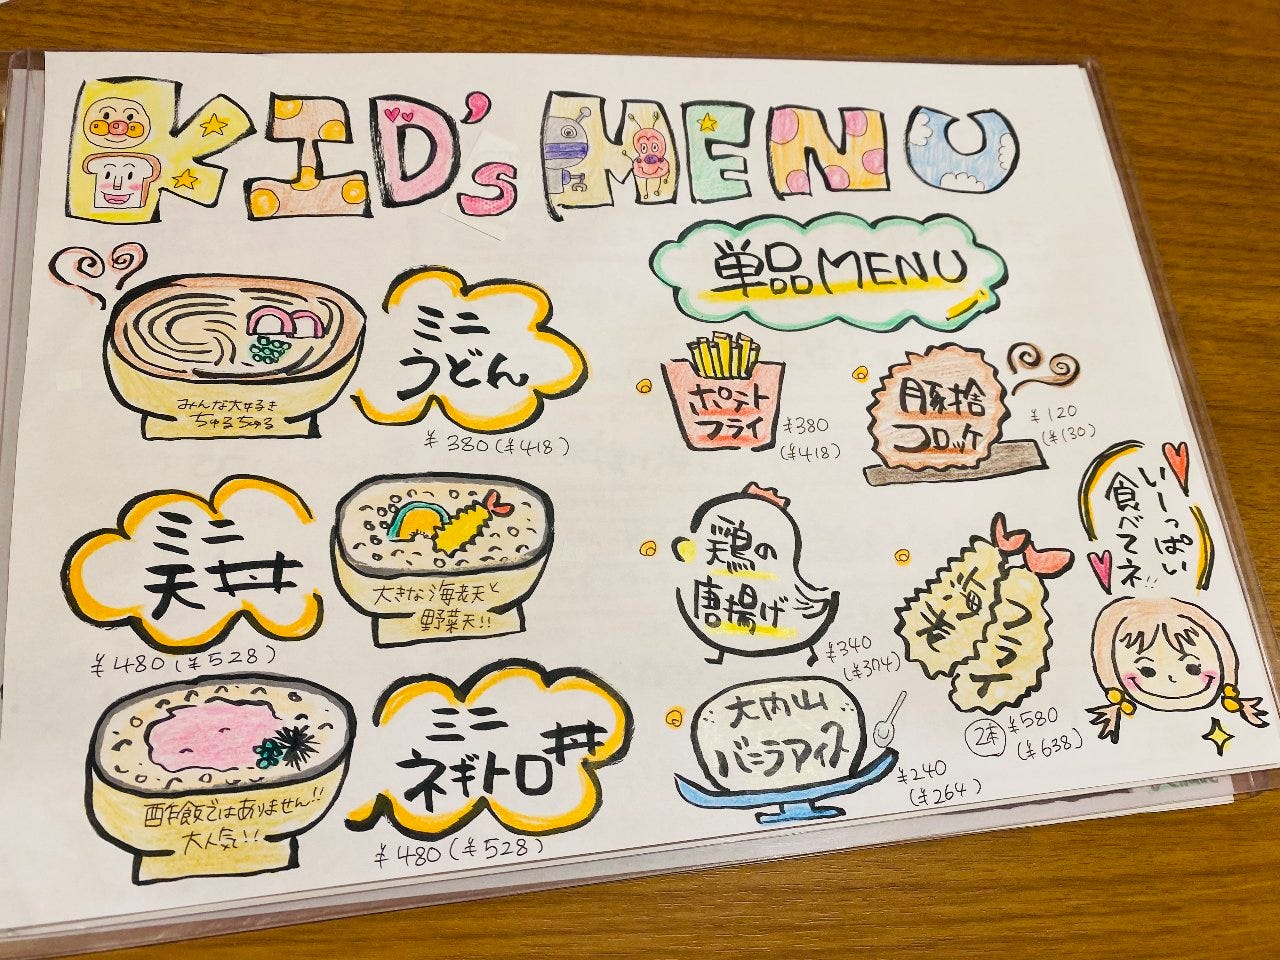 KID's MENU
ミニ
うどん
みんな大好き
ちゅるちゅる
¥380(¥418)
ミニ
天丼
大きな海老天と
野菜天!!
¥480(¥528)
ミニ
ネギトロ丼
酢飯ではありません!!
大人気!!
¥480(¥528)
単品MENU
ポテト
フライ
¥380
(¥418)
豚捨
コロッケ
¥120
(¥130)
鶏の
唐揚げ
¥340
(¥374)
海老
フライ
2本
¥580
(¥638)
大内山
バニラアイス
¥240
(¥264)
いーっぱい
食べてネ!!